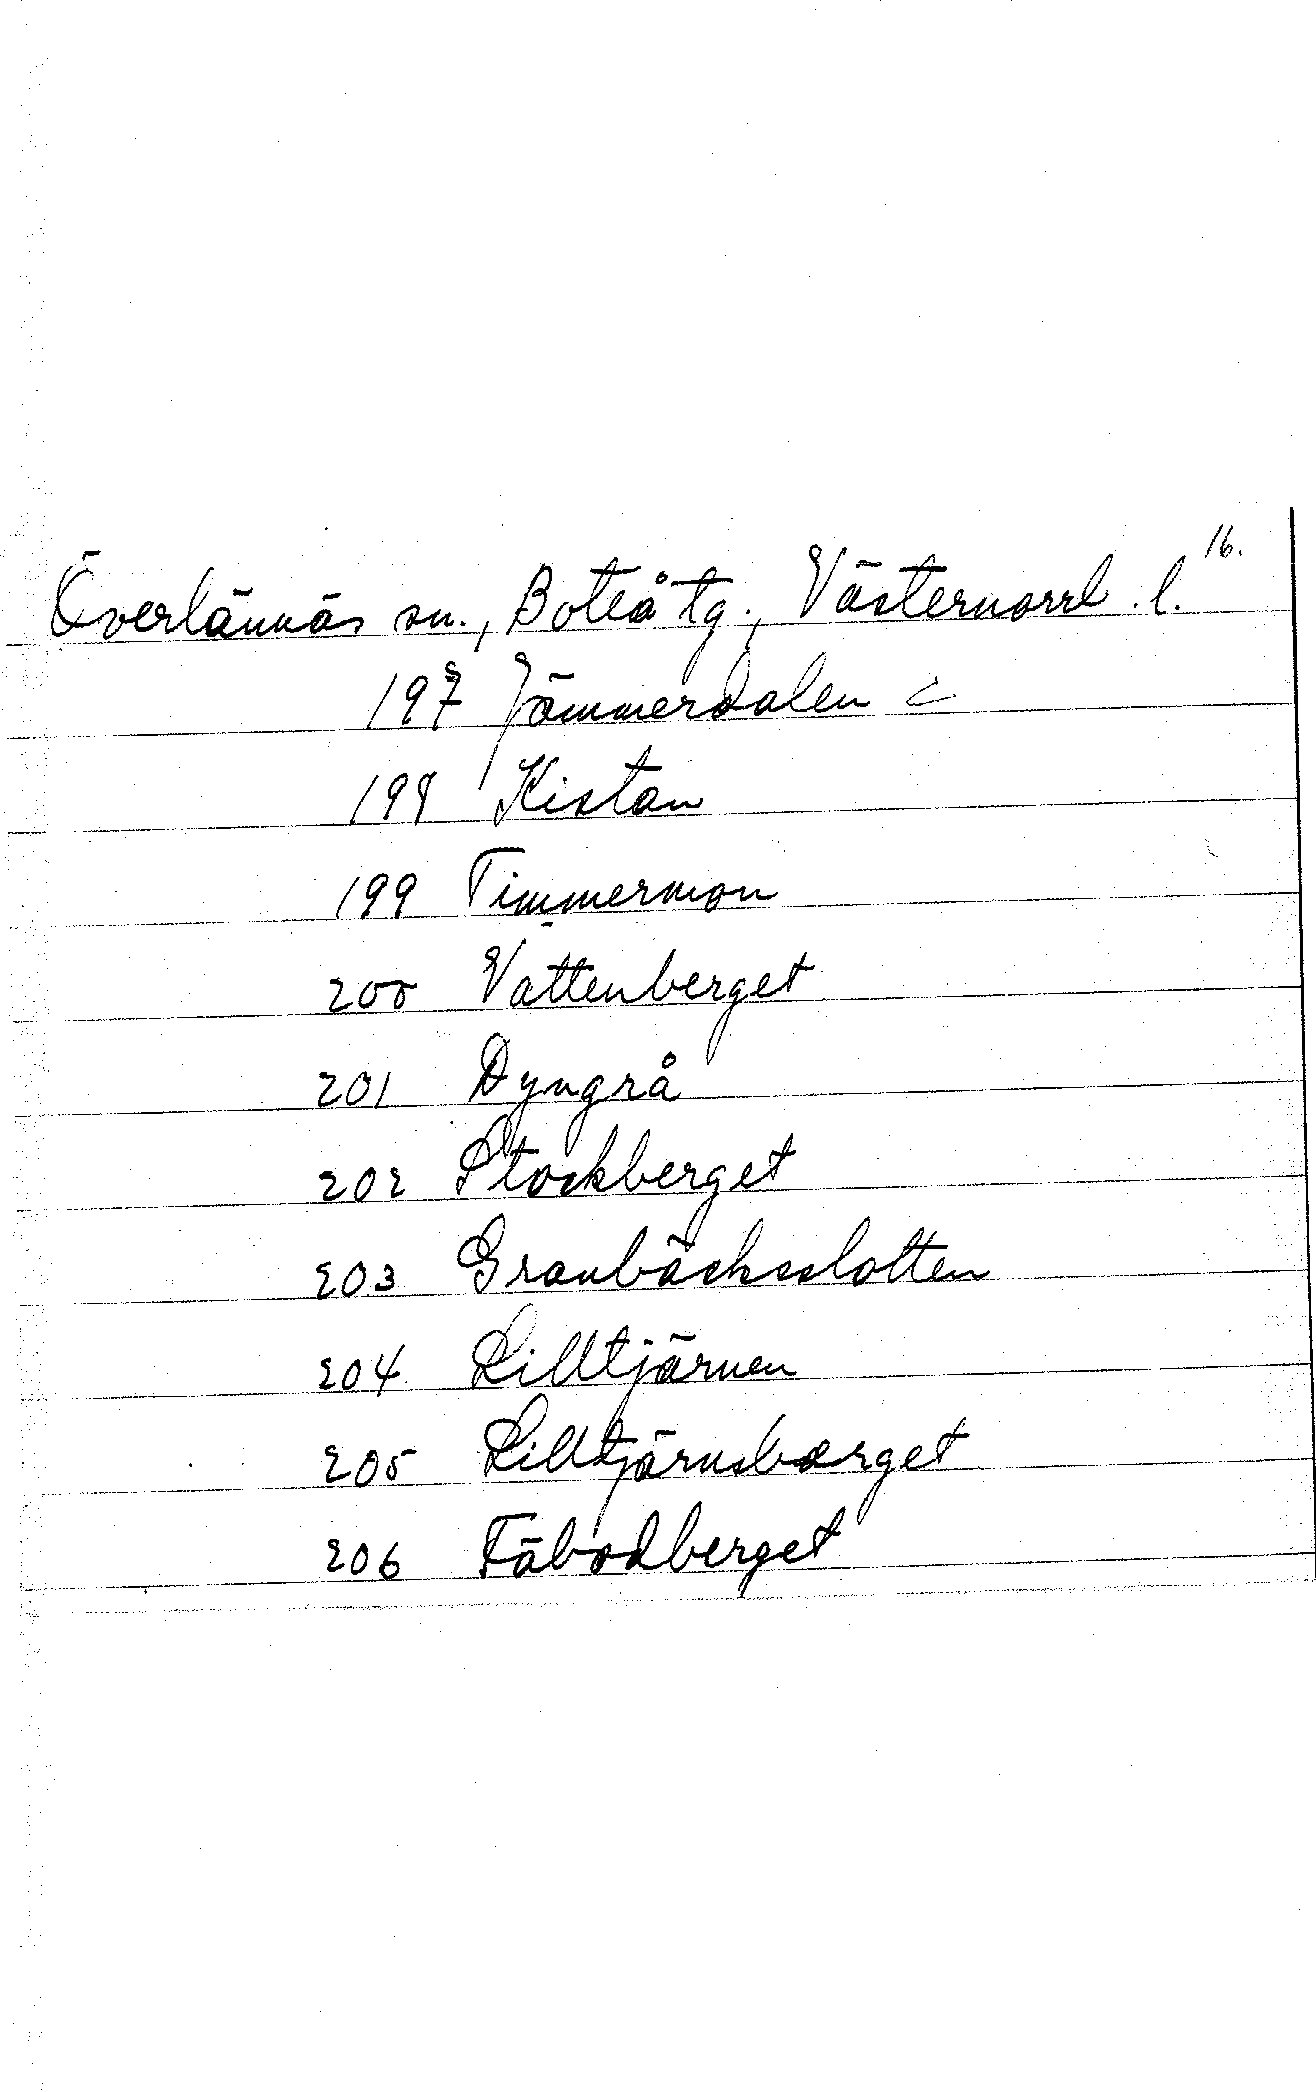 16.
Överlännäs sn., Boteå tg., Västernorrl. l.
197 Jämmerdalen
199 Kistan
199 Timmermon
200 Vattenberget
201 Dyngrå
202 Stockberget
203 Granbäcksslotten
204 Lilltjärnen
205 Lilltjärnsberget
206 Fäbodberget